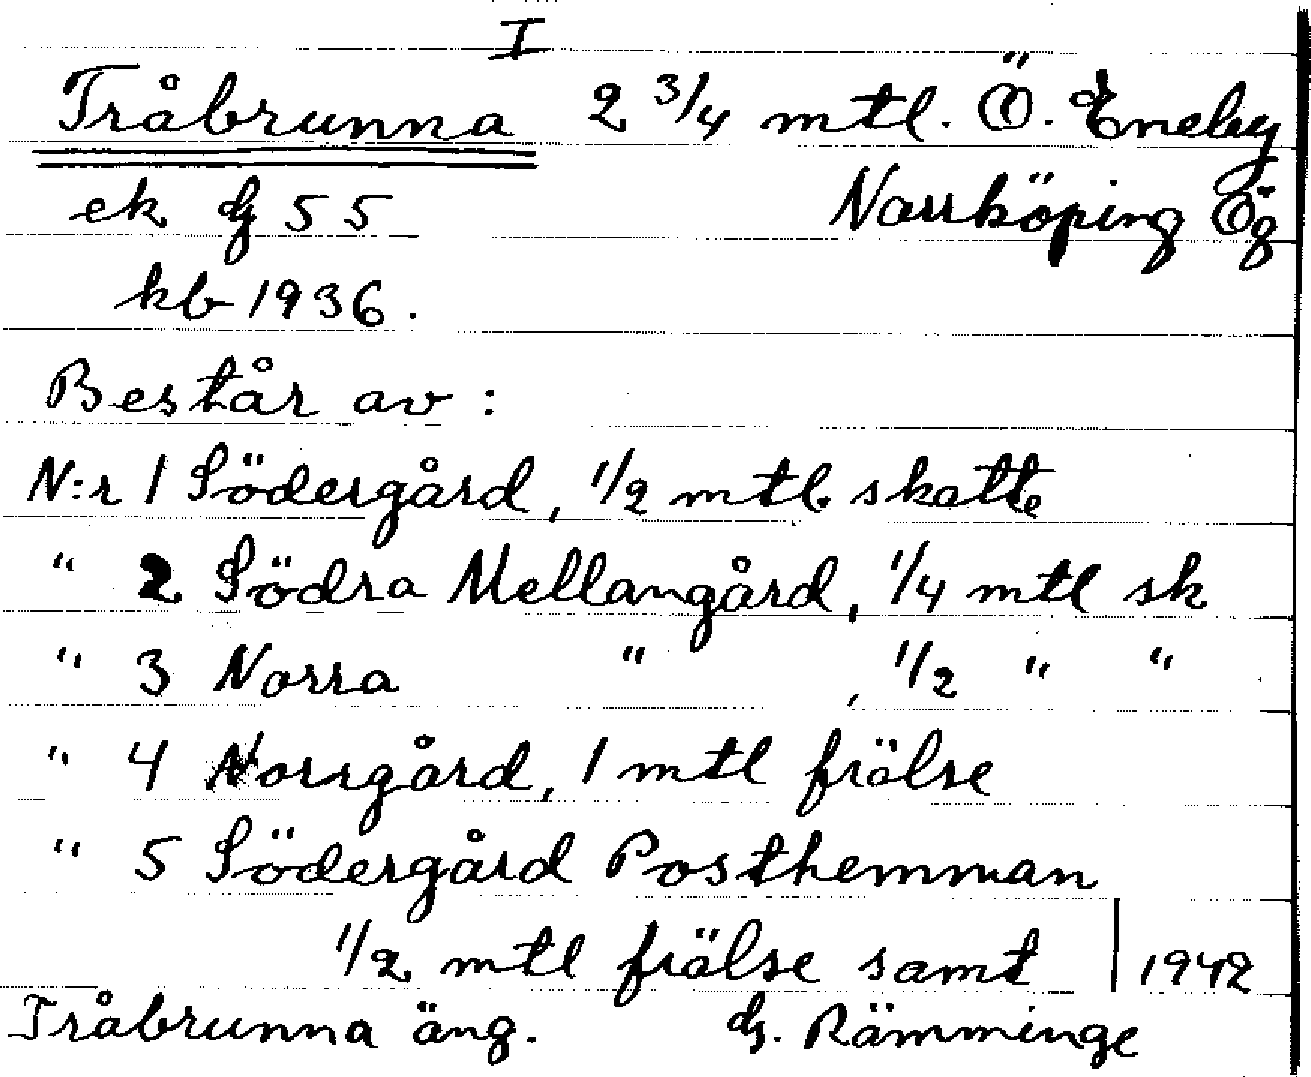 I
Tråbrunna 2 3/4 mtl. Ö. Eneby
ek dg 55 Norrköping Ög
kb 1936.
Består av:
N:r 1 Södergård, 1/2 mtl. skatte
" 2 Södra Mellangård, 1/4 mtl sk
" 3 Norra " , 1/2 " "
" 4 Norrgård, 1 mtl frälse
" 5 Södergård Posthemman
1/2 mtl frälse samt | 1942
Tråbrunna äng. G. Rämminge